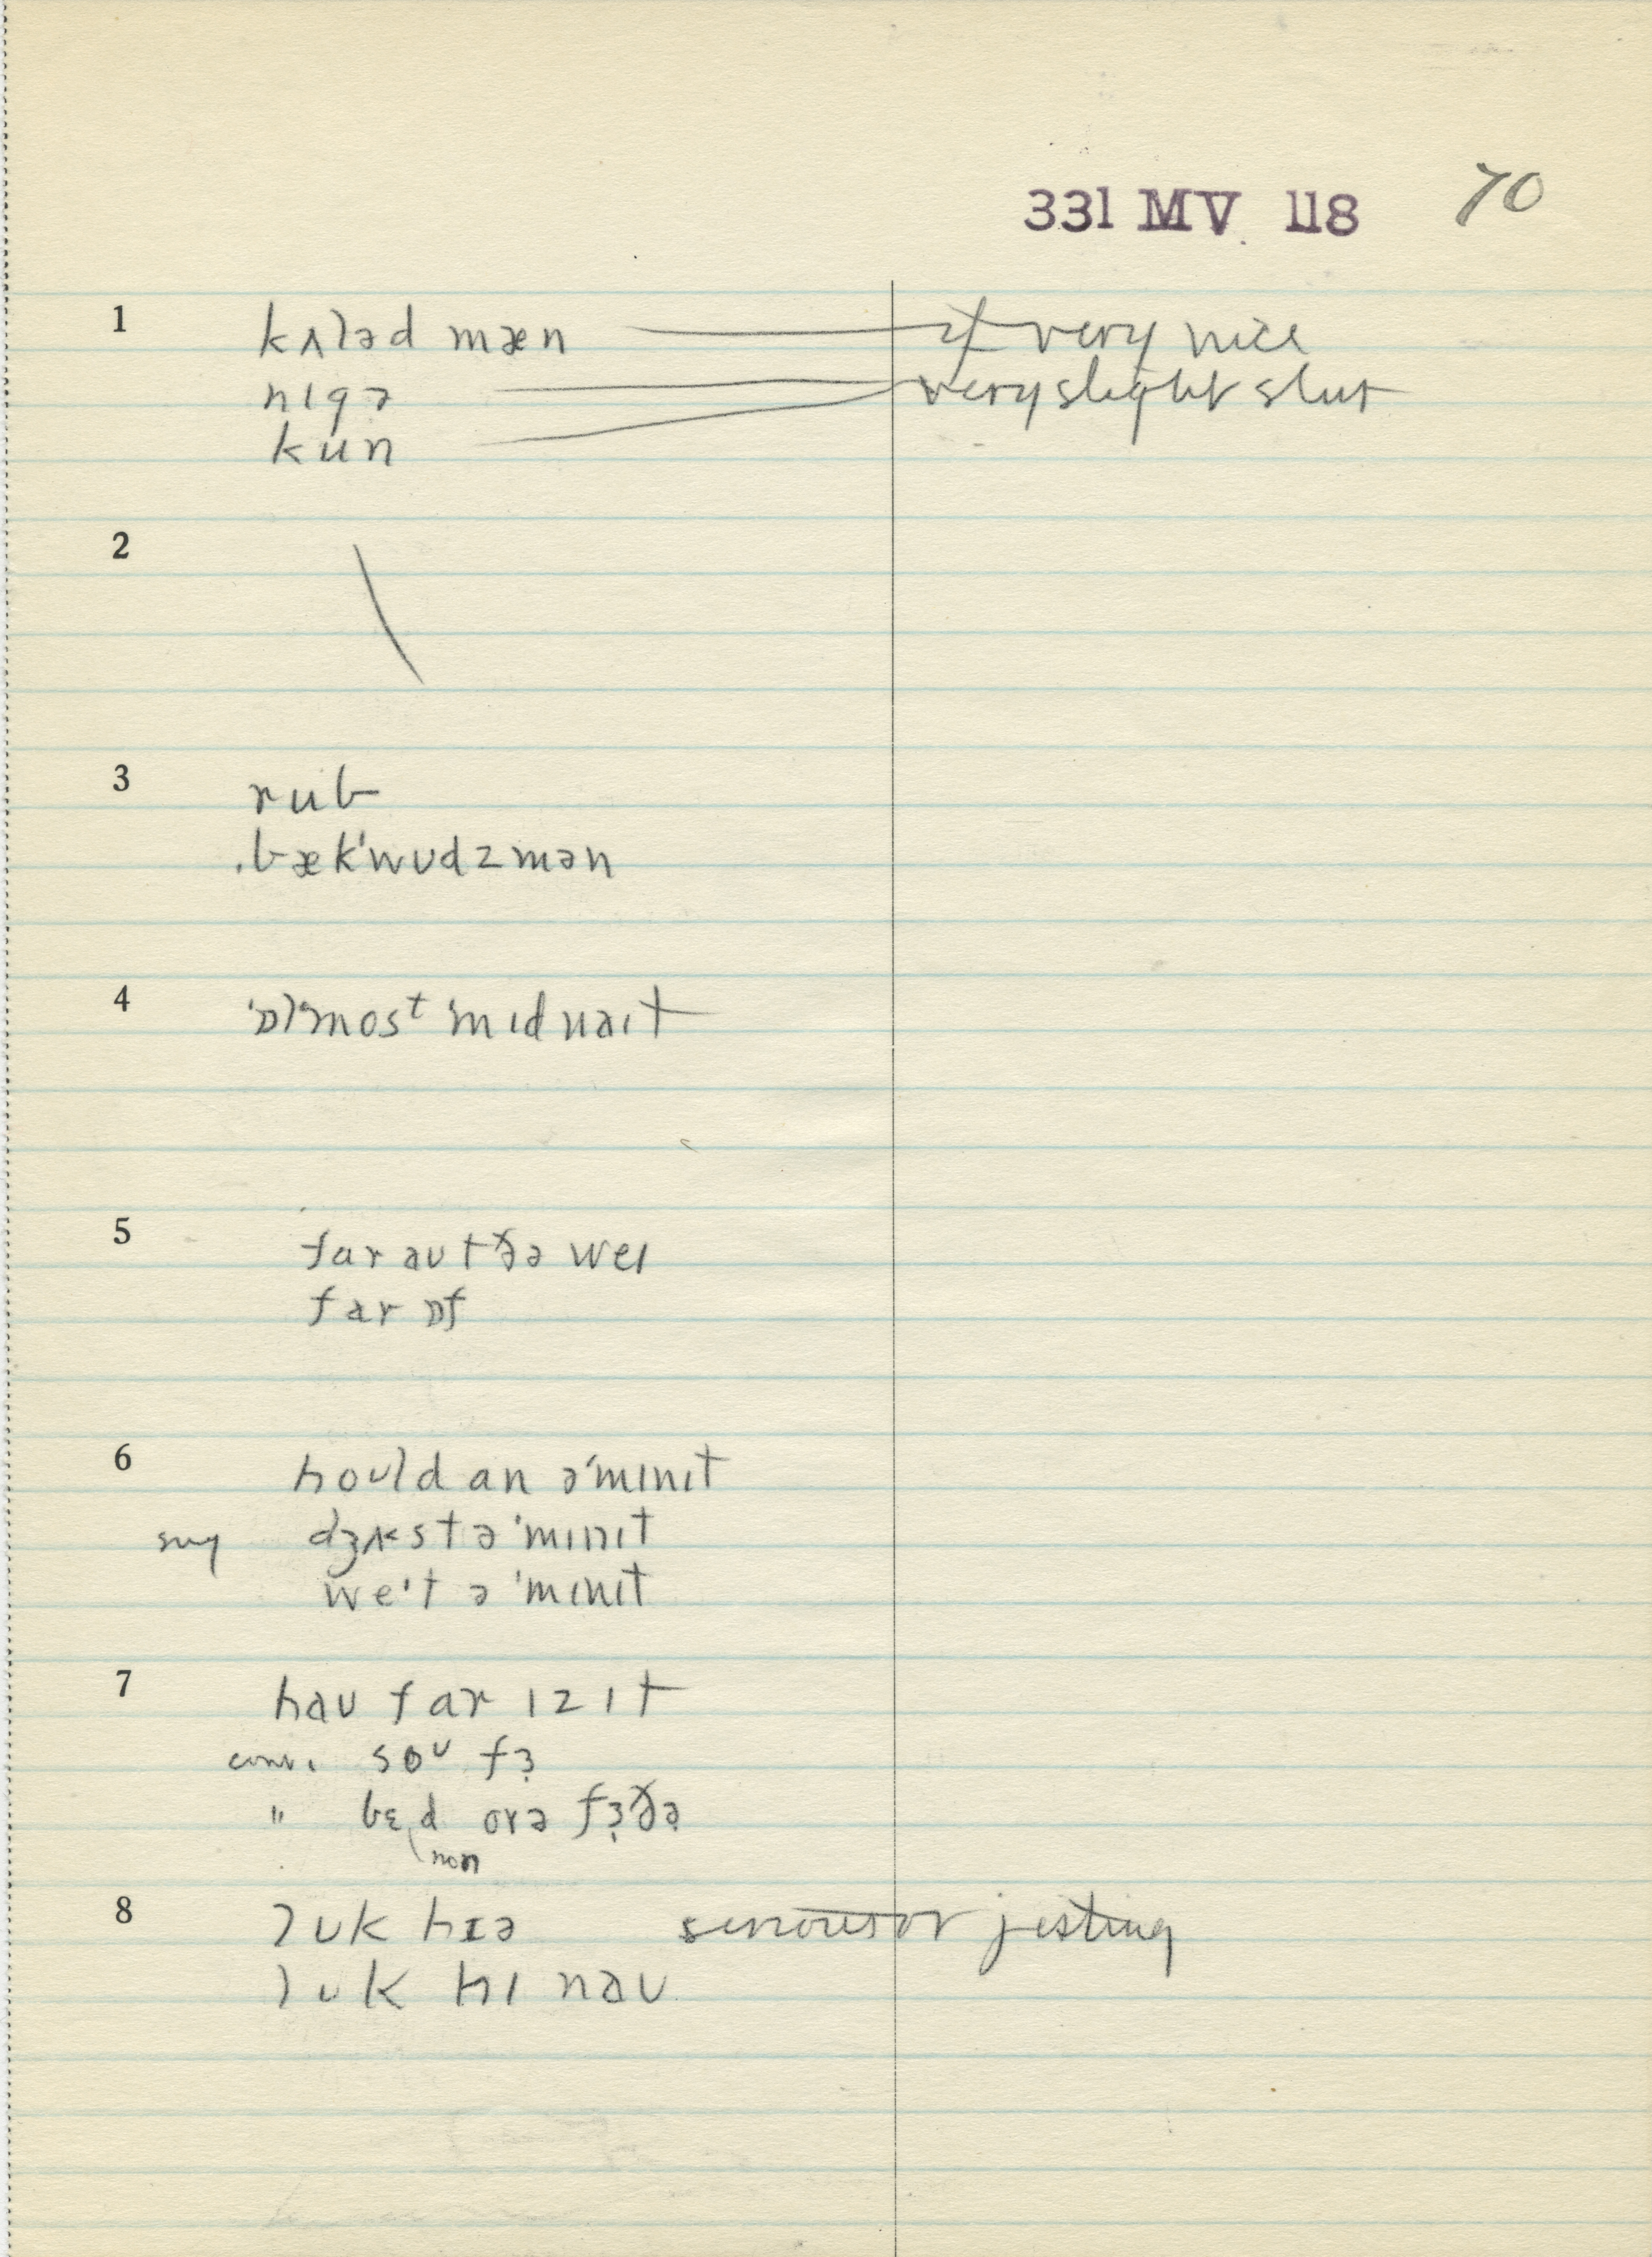 331 MV 118 70
1 kʌləd mæn if very nice
nɪgə very slight slur
kun
2 \
3 rub
bæk'wʊdzmən
4 'ɒlmosᵗ 'mɪdnaɪt
5 far aʊt ðə weɪ
far ɒf
6 hoʊld an ə'mɪnɪt
sug dʒʌst ə 'mɪnɪt
we't ə 'mɪnɪt
7 haʊ far ɪz ɪt
conv. soᵘ fɜ
" bɛd orə fɜðə
non
8 lʊk hɪə serious or jesting
lʊk hɪ naʊ